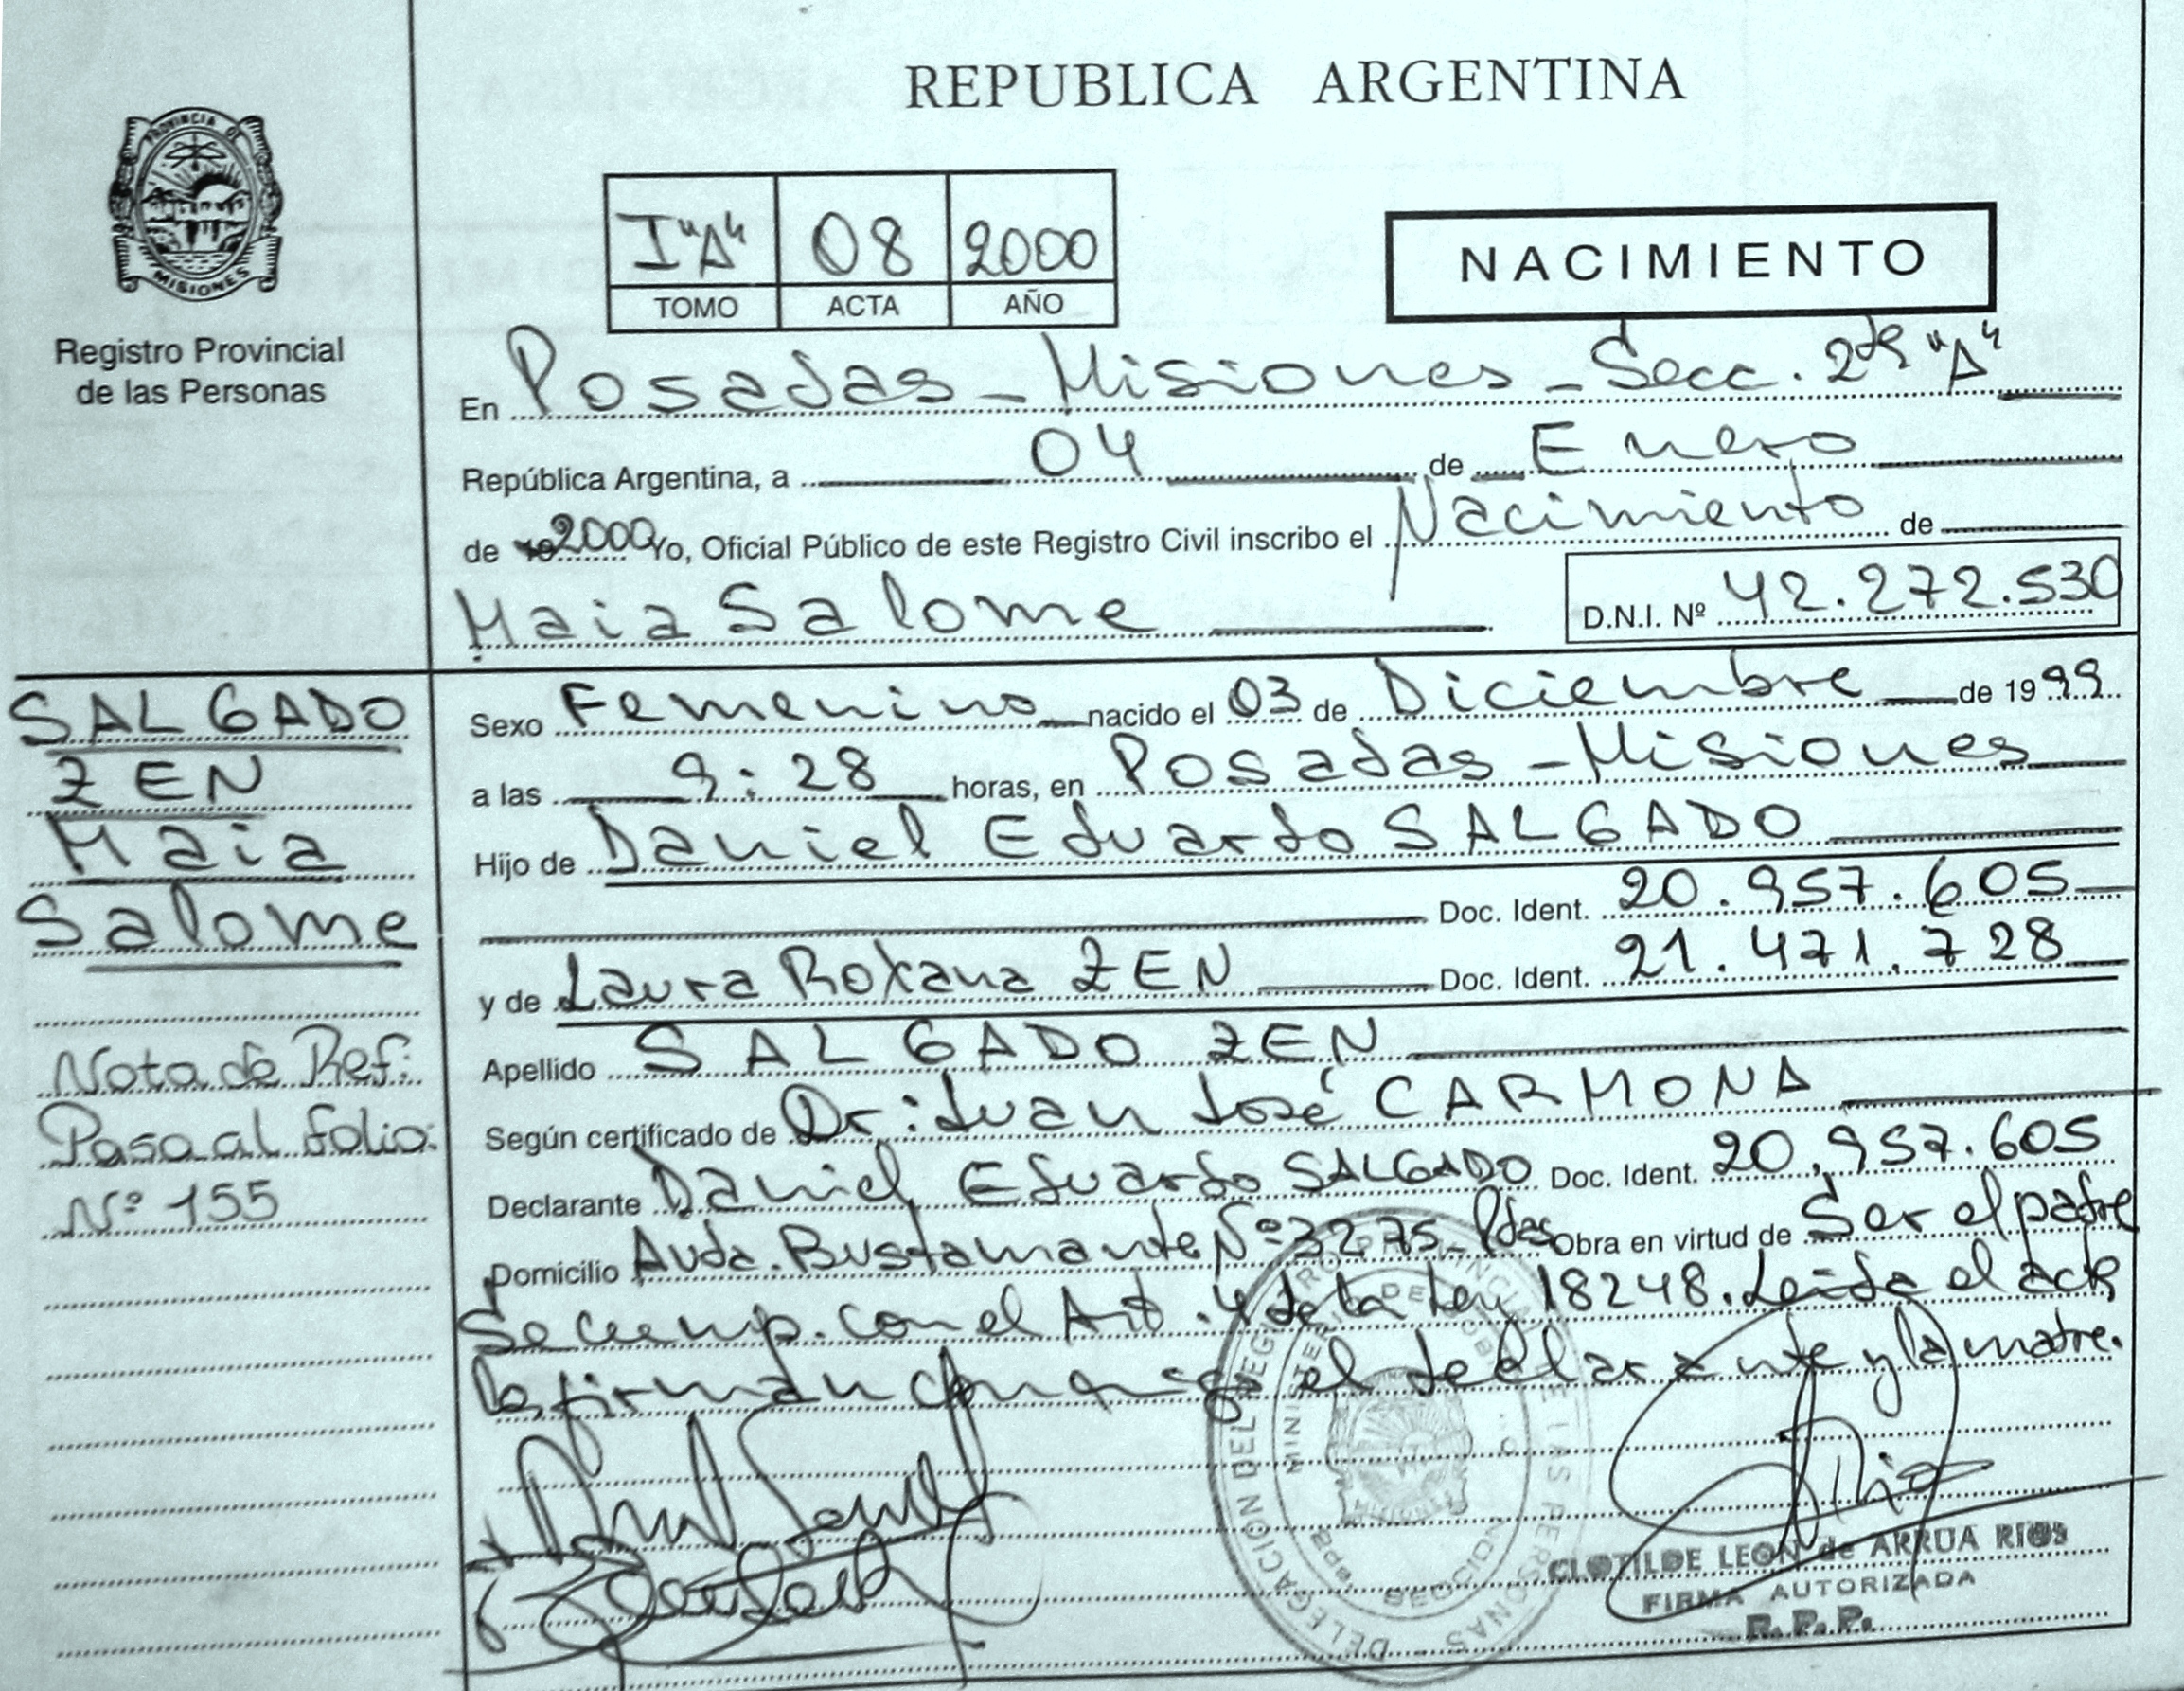 REPUBLICA ARGENTINA
PROVINCIA DE
MISIONES
Registro Provincial
de las Personas
I "A" 08 2000
TOMO ACTA AÑO
NACIMIENTO
En Posadas - Misiones - Secc. 2da "A"
República Argentina, a 04 de Enero
de 19 2000 Yo, Oficial Público de este Registro Civil inscribo el Nacimiento de
Maia Salome
D.N.I. Nº 42.272.530
SALGADO
ZEN
Maia
Salome
Nota de Ref:
Pasa al folio:
Nº 155
Sexo Femenino nacido el 03 de Diciembre de 1999
a las 9:28 horas, en Posadas - Misiones
Hijo de Daniel Eduardo SALGADO
Doc. Ident. 20.957.605
y de Laura Roxana ZEN Doc. Ident. 21.471.728
Apellido SALGADO ZEN
Según certificado de Dr: Juan José CARMONA
Declarante Daniel Eduardo SALGADO Doc. Ident. 20.957.605
Domicilio Avda. Bustamante Nº 3275 - Pdas Obra en virtud de Ser el padre
Se cump. con el Art. 4 de la Ley 18248. Leida el acta
la firman conmigo el declarante y la madre.
CLOTILDE LEON de ARRUA RIOS
FIRMA AUTORIZADA
R. P. P.